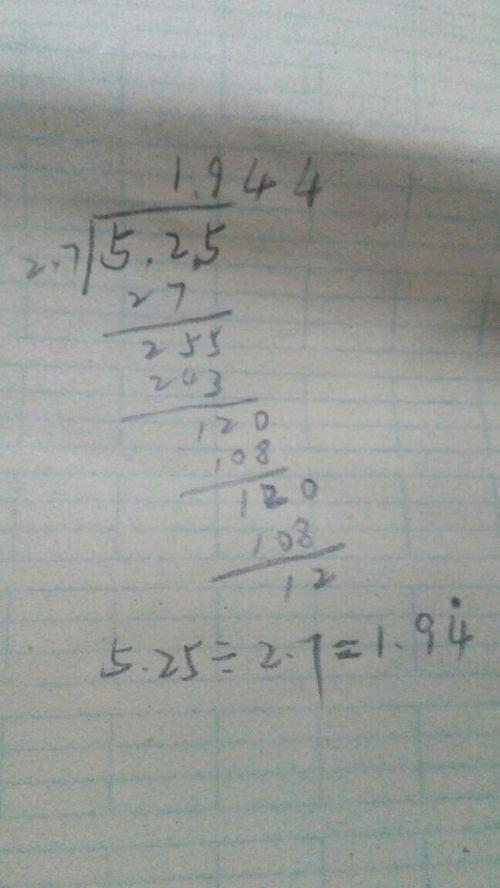 1.944
2.7 5.2.5
27
255
243
120
108
120
108
12
5.25÷2.7=1.94̇